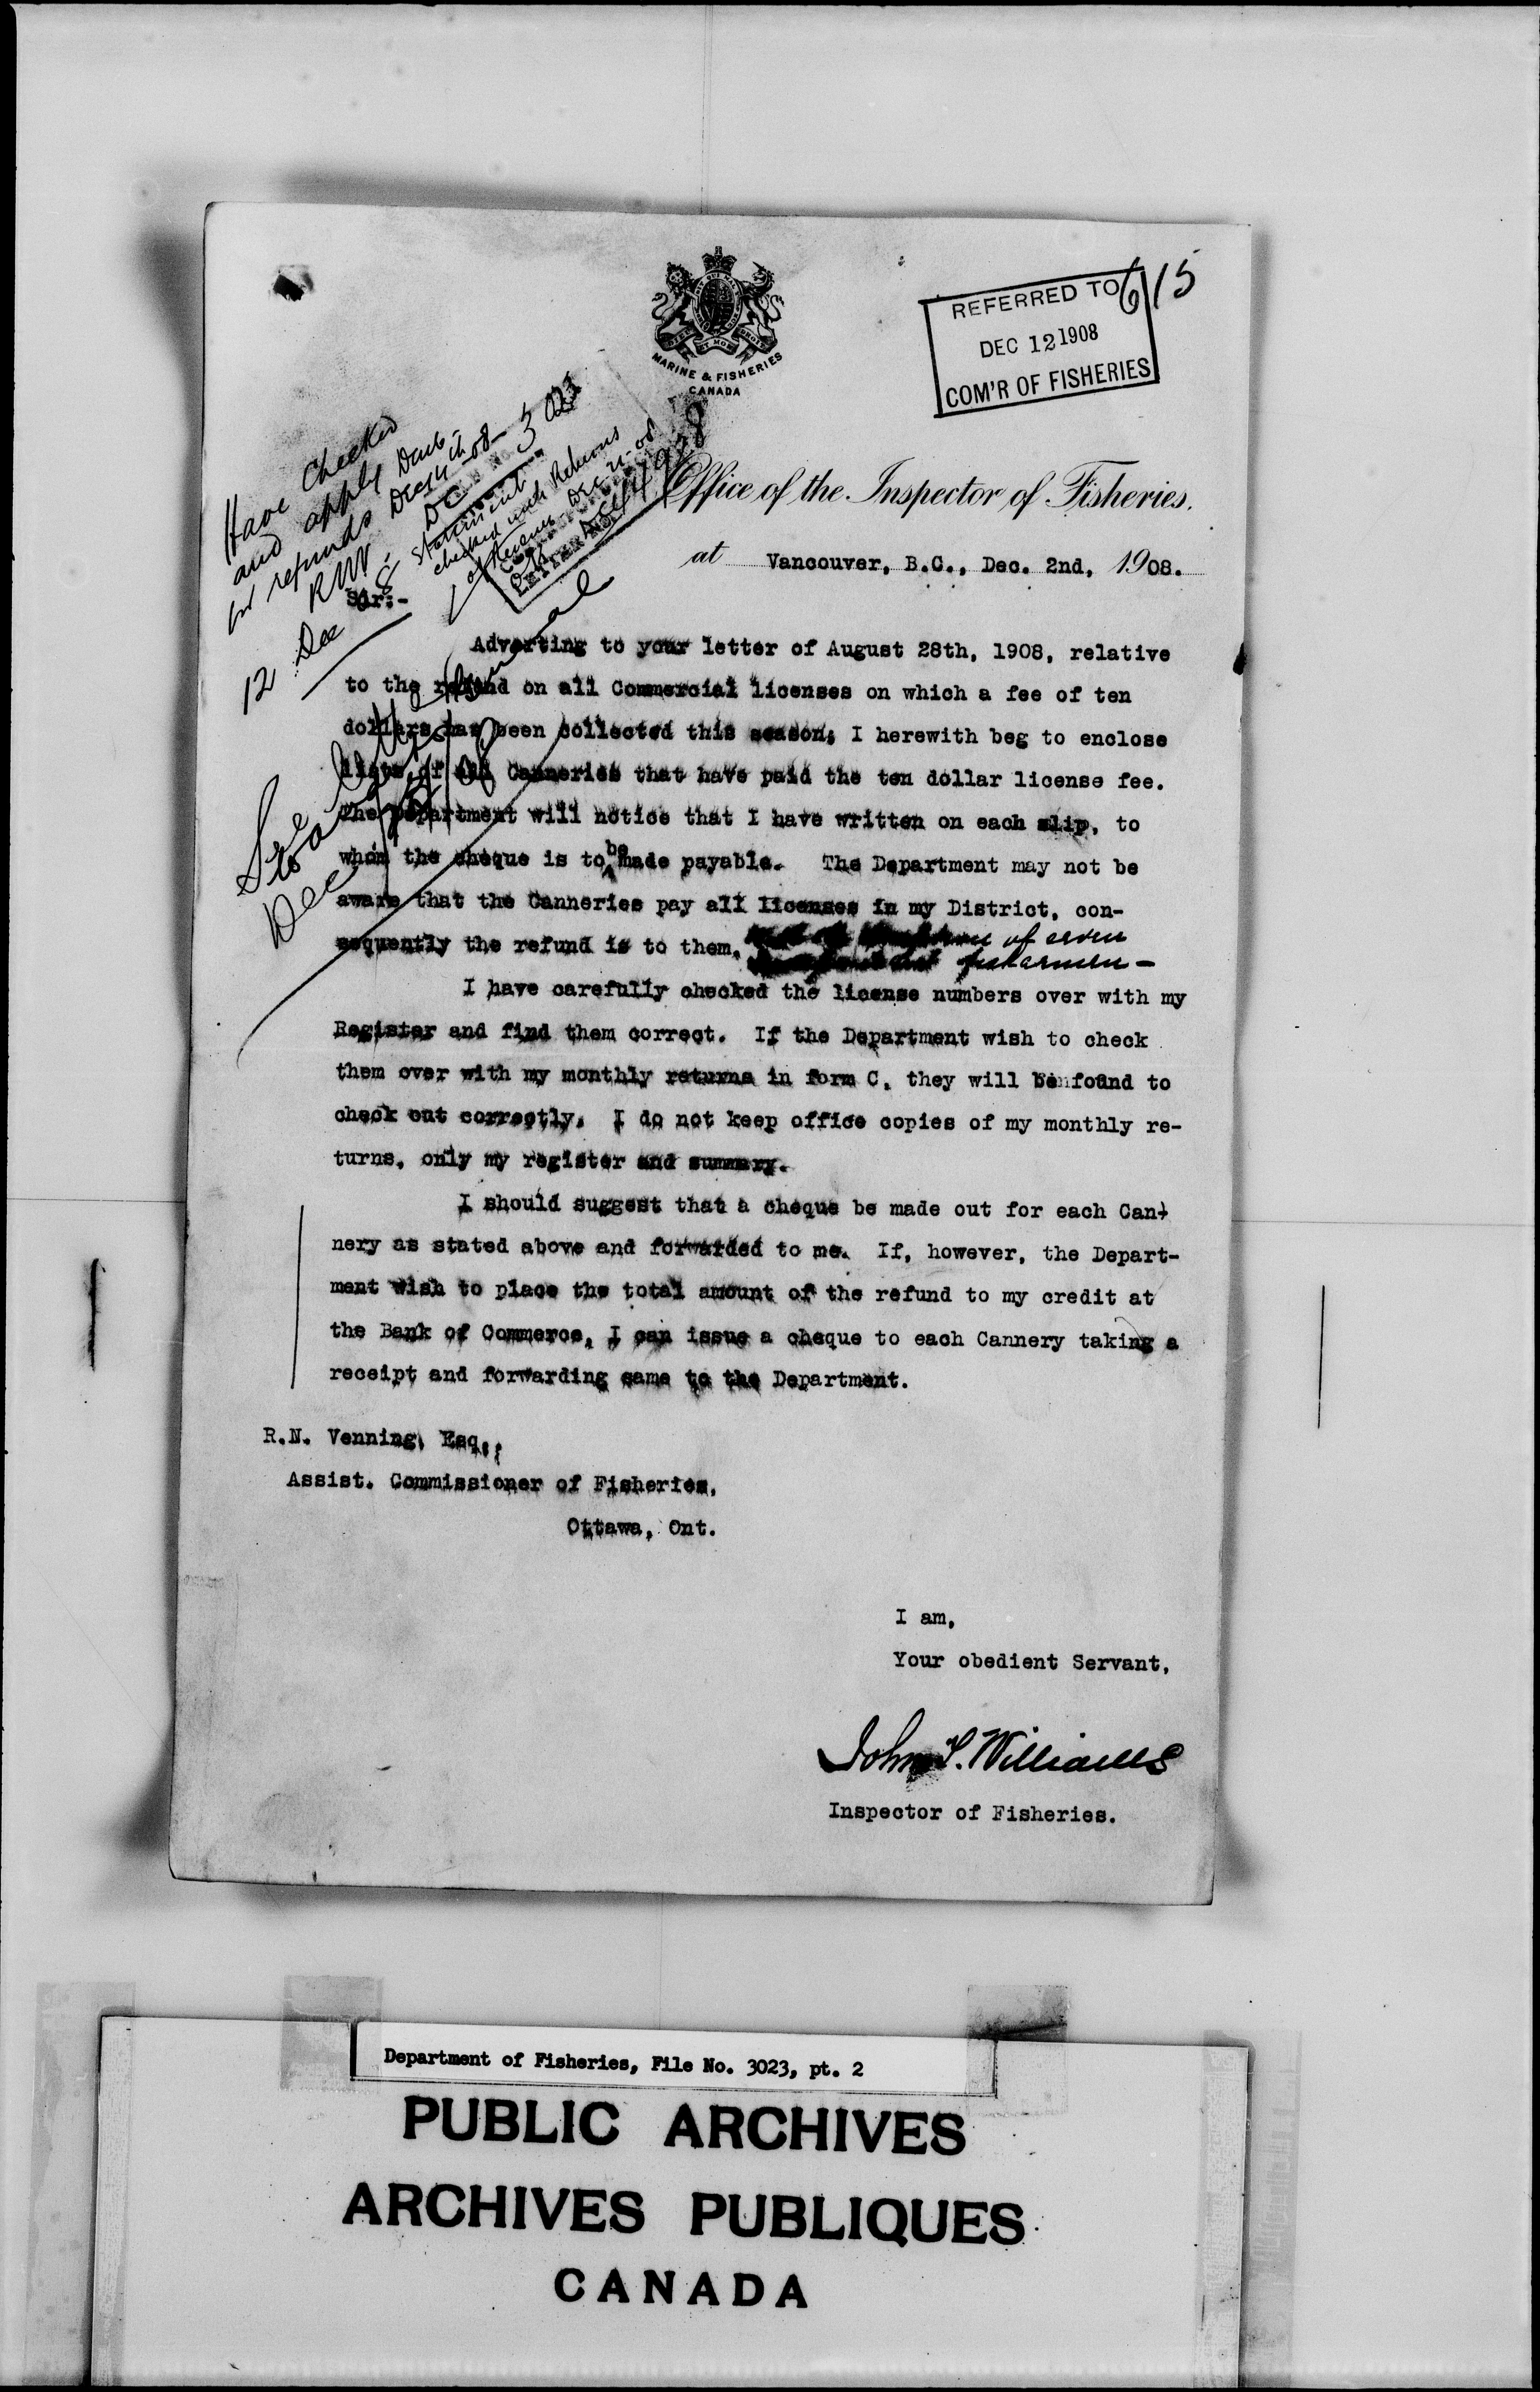 MARINE & FISHERIES
CANADA
REFERRED TO
DEC 12 1908
COM'R OF FISHERIES
615
Have checked
and apply
for refunds
12 Dec
Statement
checked with Returns
of Revenue Dec 21-08
Office of the Inspector of Fisheries.
at Vancouver, B.C., Dec. 2nd, 1908.
Sir:-
Adverting to your letter of August 28th, 1908, relative
to the refund on all Commercial licenses on which a fee of ten
dollars has been collected this season; I herewith beg to enclose
lists of all Canneries that have paid the ten dollar license fee.
The Department will notice that I have written on each slip, to
whom the cheque is to be made payable. The Department may not be
aware that the Canneries pay all licenses in my District, con-
sequently the refund is to them, of seven
fishermen -
I have carefully checked the license numbers over with my
Register and find them correct. If the Department wish to check
them over with my monthly returns in form C, they will be found to
check out correctly. I do not keep office copies of my monthly re-
turns, only my register and summary.
I should suggest that a cheque be made out for each Can-
nery as stated above and forwarded to me. If, however, the Depart-
ment wish to place the total amount of the refund to my credit at
the Bank of Commerce, I can issue a cheque to each Cannery taking a
receipt and forwarding same to the Department.
R.N. Venning, Esq.,
Assist. Commissioner of Fisheries,
Ottawa, Ont.
I am,
Your obedient Servant,
John T. Williams
Inspector of Fisheries.
Department of Fisheries, File No. 3023, pt. 2
PUBLIC ARCHIVES
ARCHIVES PUBLIQUES
CANADA